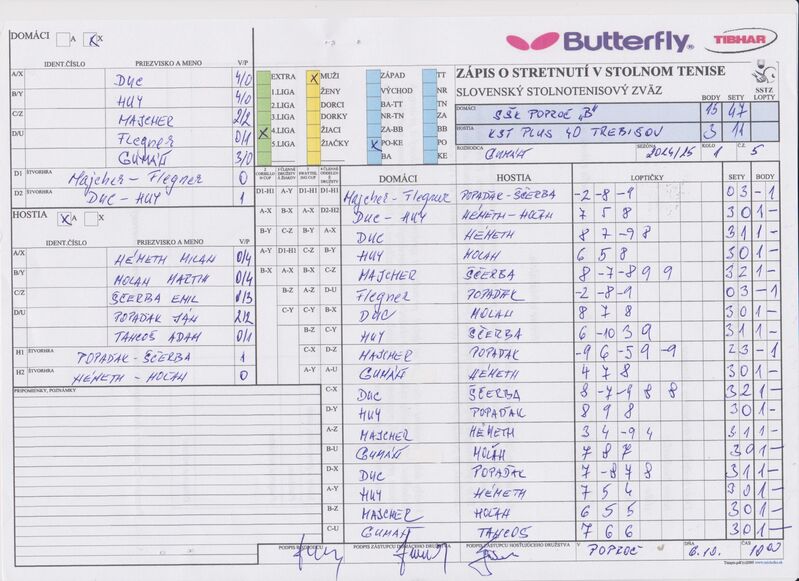 DOMÁCI A X
Butterfly
TIBHAR
IDENT.ČÍSLO PRIEZVISKO A MENO V/P
A/X DUC 4/0
B/Y HUY 4/0
C/Z MAJCHER 2/2
D/U Flegner 0/1
GUMÁŇ 3/0
D1 ŠTVORHRA Majcher - Flegner 0
D2 ŠTVORHRA DUC - HUY 1
HOSTIA X A X
IDENT.ČÍSLO PRIEZVISKO A MENO V/P
A/X NÉMETH MILAN 0/4
B/Y HOLAN MARTIN 0/4
C/Z ŠČERBA EMIL 0/3
D/U POPAĎAK JÁN 2/2
TANCOŠ ADAM 0/1
H1 ŠTVORHRA POPAĎAK-ŠČERBA 1
H2 ŠTVORHRA NÉMETH - HOLAN 0
PRIPOMIENKY, POZNÁMKY
EXTRA X MUŽI ZÁPAD TT
1.LIGA ŽENY VÝCHOD NR
2.LIGA DORCI BA-TT TN
3.LIGA DORKY NR-TN ZA
X 4.LIGA ŽIACI ZA-BB BB
5.LIGA ŽIAČKY X PO-KE PO
BA KE
ZÁPIS O STRETNUTÍ V STOLNOM TENISE
SLOVENSKÝ STOLNOTENISOVÝ ZVÄZ
SSTZ
BODY SETY LOPTY
DOMÁCI SŠK POPROČ „B" 15 47
HOSTIA KST PLUS 40 TREBIŠOV 3 11
ROZHODCA GUMÁŇ SEZÓNA 2024/25 KOLO 1 Č.Z. 5
DOMÁCI HOSTIA LOPTIČKY SETY BODY
D1-H1 A-Y D1-H1 D1-H1 Majcher - Flegner POPAĎAK-ŠČERBA -2 -8 -9 0 3 - 1
A-X B-X A-X D2-H2 DUC - HUY NÉMETH-HOLAN 7 5 8 3 0 1 -
B-Y C-Z B-Y A-X DUC NÉMETH 8 7 -9 8 3 1 1 -
A-Y D1-H1 C-Z B-Y HUY HOLAN 6 5 8 3 0 1 -
B-X A-X B-X C-Z MAJCHER ŠČERBA 8 -7 -8 9 9 3 2 1 -
B-Z A-Z D-U Flegner POPAĎAK -2 -8 -9 0 3 - 1
C-Y C-Y B-X DUC HOLAN 8 7 8 3 0 1 -
B-Z C-Y HUY ŠČERBA 6 -10 3 9 3 1 1 -
C-X D-Z MAJCHER POPAĎAK -9 6 -5 9 -9 2 3 - 1
A-Y A-U GUMÁŇ NÉMETH 4 7 8 3 0 1 -
C-X DUC ŠČERBA 8 -7 -9 8 8 3 2 1 -
D-Y HUY POPAĎAK 8 9 8 3 0 1 -
A-Z MAJCHER NÉMETH 3 4 -9 4 3 1 1 -
B-U GUMÁŇ HOLAN 7 8 7 3 0 1 -
D-X DUC POPAĎAK 7 -8 4 8 3 1 1 -
A-Y HUY NÉMETH 7 5 4 3 0 1 -
B-Z MAJCHER HOLAN 6 5 5 3 0 1 -
C-U GUMAŇ TANCOŠ 7 6 6 3 0 1 -
PODPIS ROZHODCU PODPIS ZÁSTUPCU DOMÁCEHO DRUŽSTVA PODPIS ZÁSTUPCU HOSŤUJÚCEHO DRUŽSTVA V POPROČ DŇA 6.10. ČAS 10 00